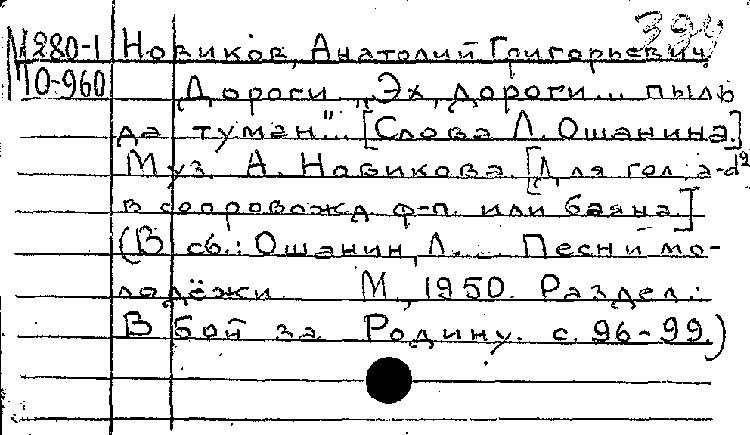 394
М280-1 Новиков, Анатолий Григорьевич
М0-960 Дороги. „Эх, дороги... пыль
да туман"... [Слова Л. Ошанина.]
Муз. А. Новикова. [Для гол.: а-d²
в сопровожд. ф-п. или баяна.]
(В сб.: Ошанин, Л. Песни мо-
лодёжи. М., 1950. Раздел:
В бой за Родину. с. 96-99.)